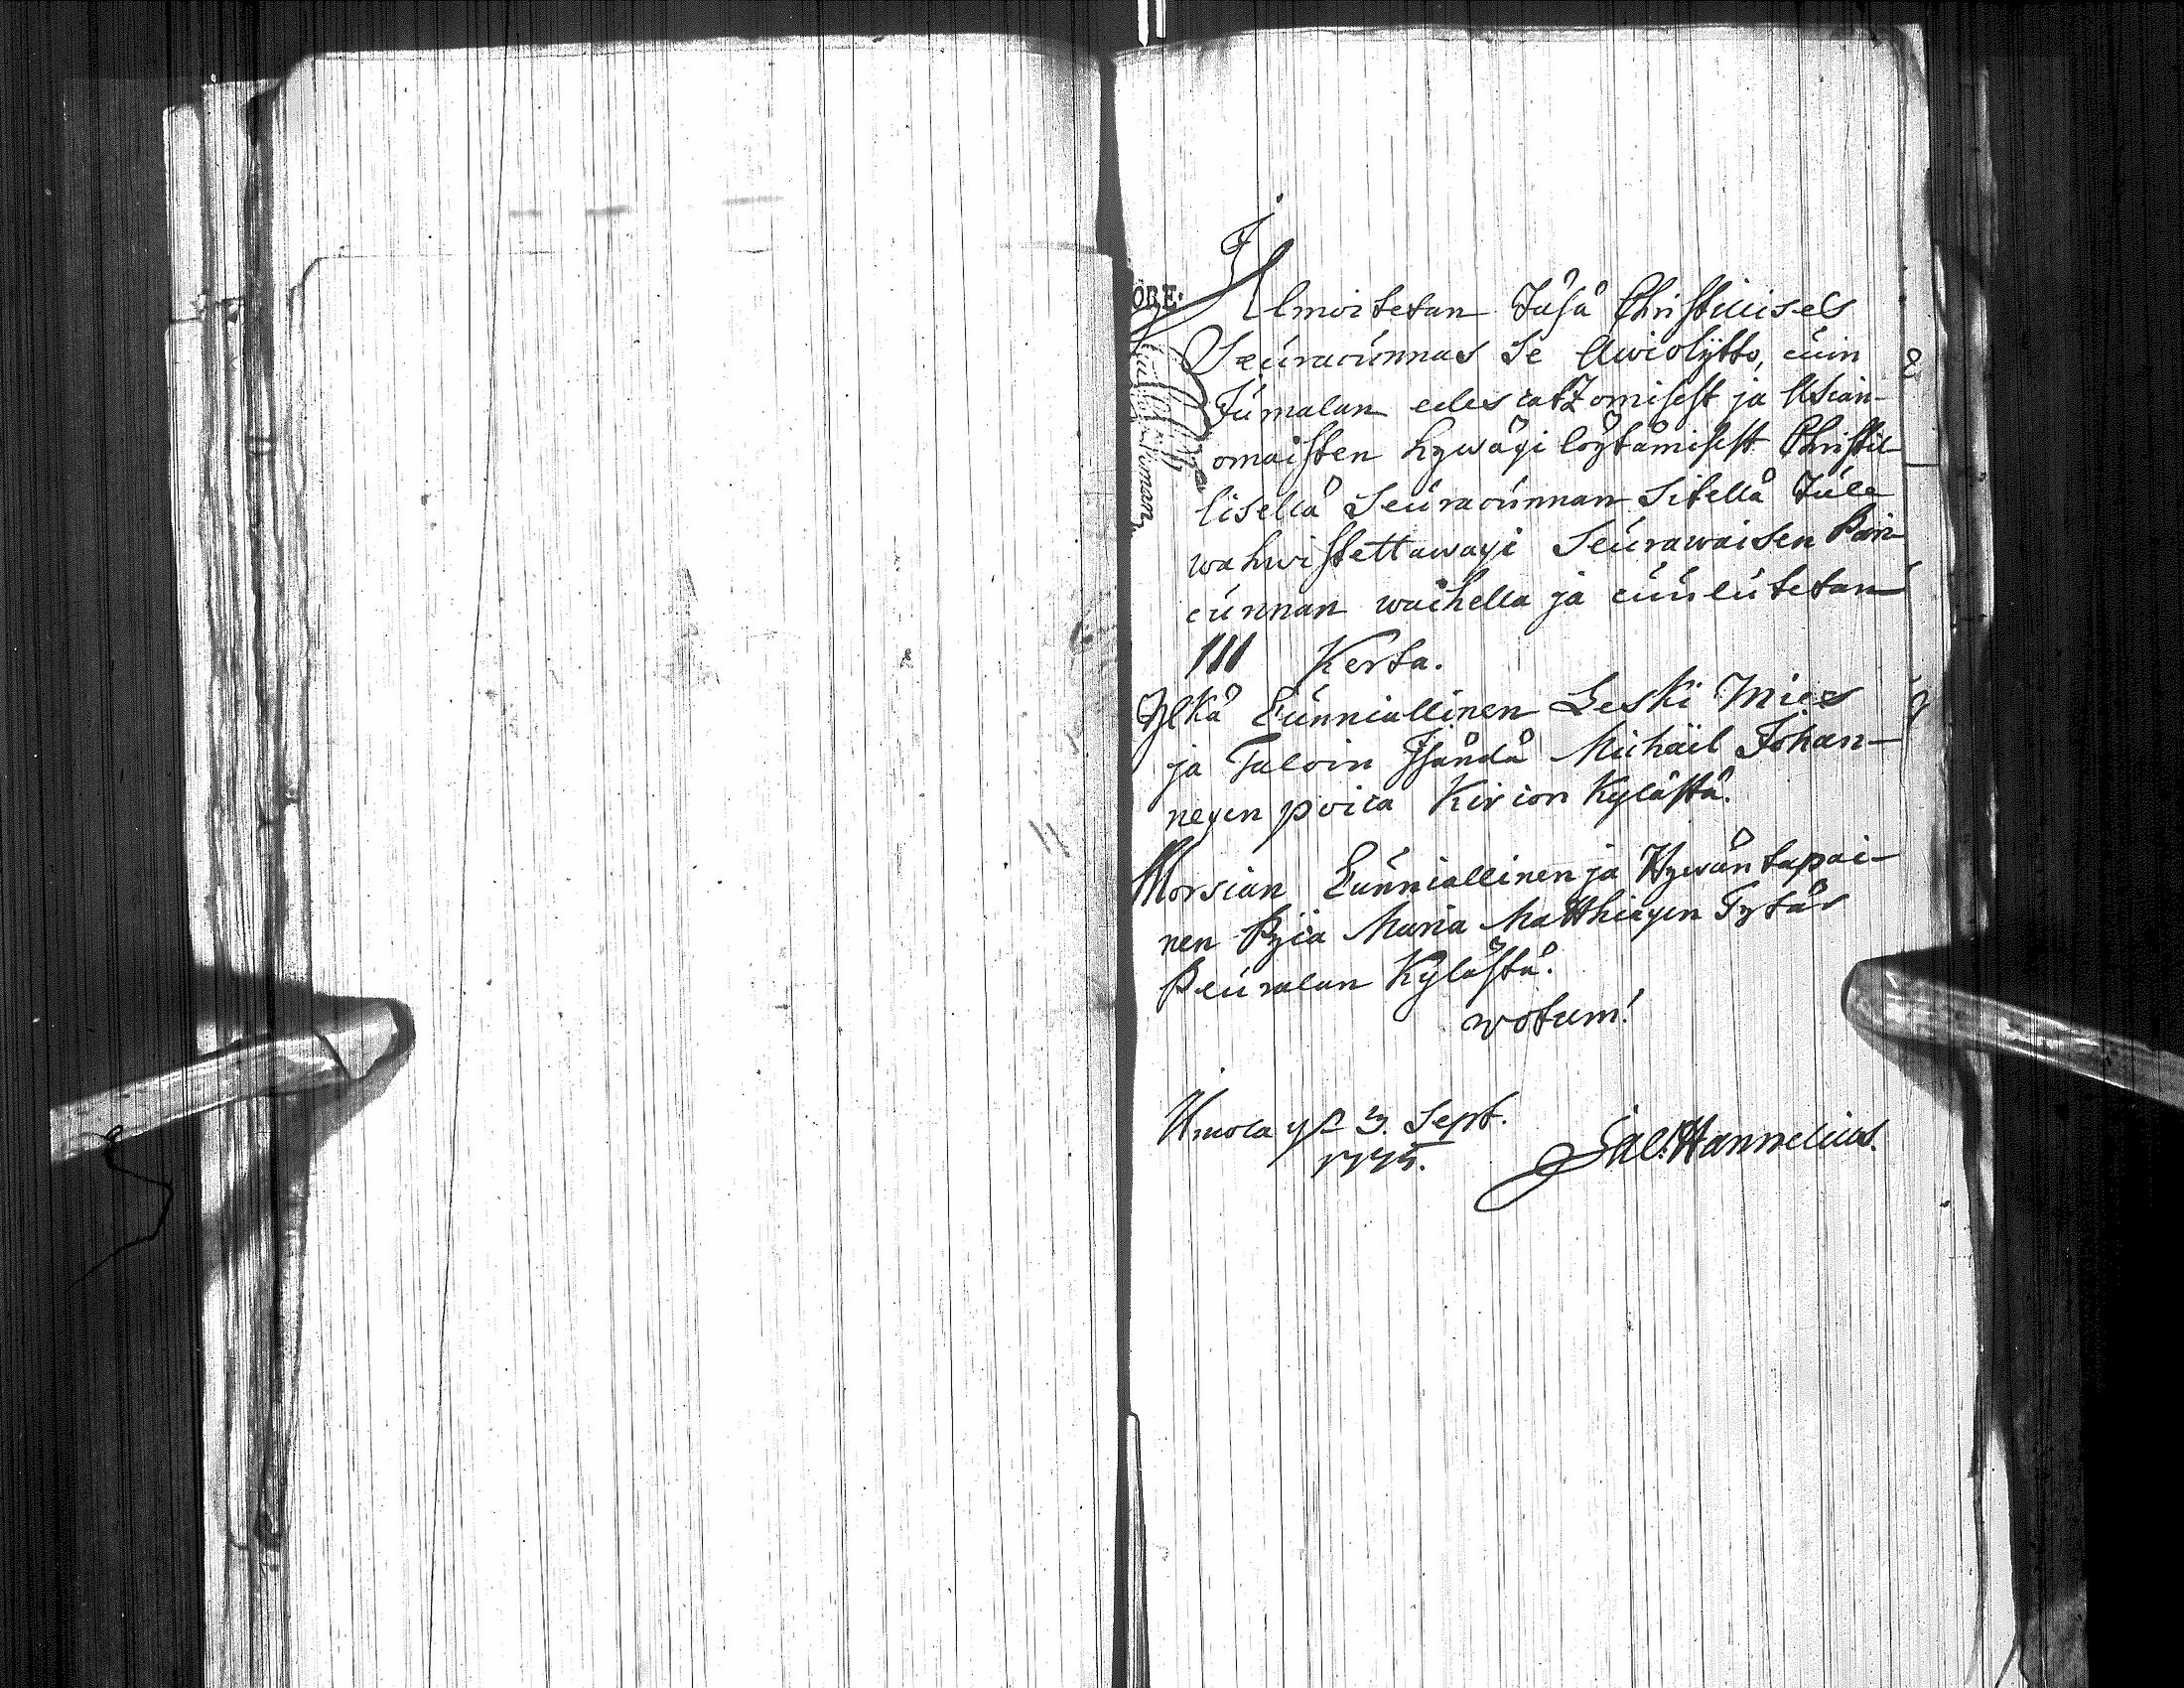 ÖRE.
Ilmoitetan Täsä Christillises
Seuracunnas Se Awiolijtto, cuin
Jumalan edescatzomisest ja Asian-
omaisten hywäxi löytämisest Christil-
lisellä Seuracunnan Sitellä Tule
wahwistettawaxi Seurawaisen Pari-
cunnan waihella ja cuulutetan
III Kerta.
Ylkä Cunniallinen Leski Mies
ja Taloin Isändä Michäel Johan-
nexen poica Kircon Kylästä.
Morsian Cunniallinen ja Hywäntapai-
nen Pijca Maria Matthiaxen Tytär
Peuralan Kylästä.
wotum!
Urwola yst 3. Sept.
1775. Sal. Hannelius.